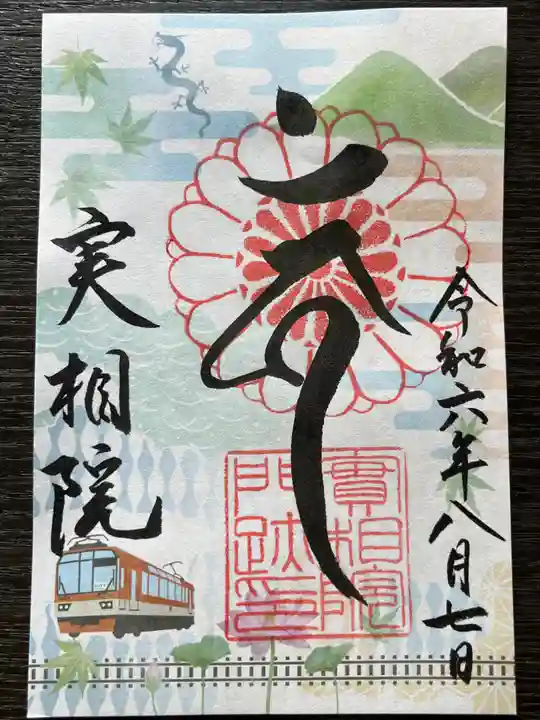 令和六年八月七日
實相院
門跡印
実相院